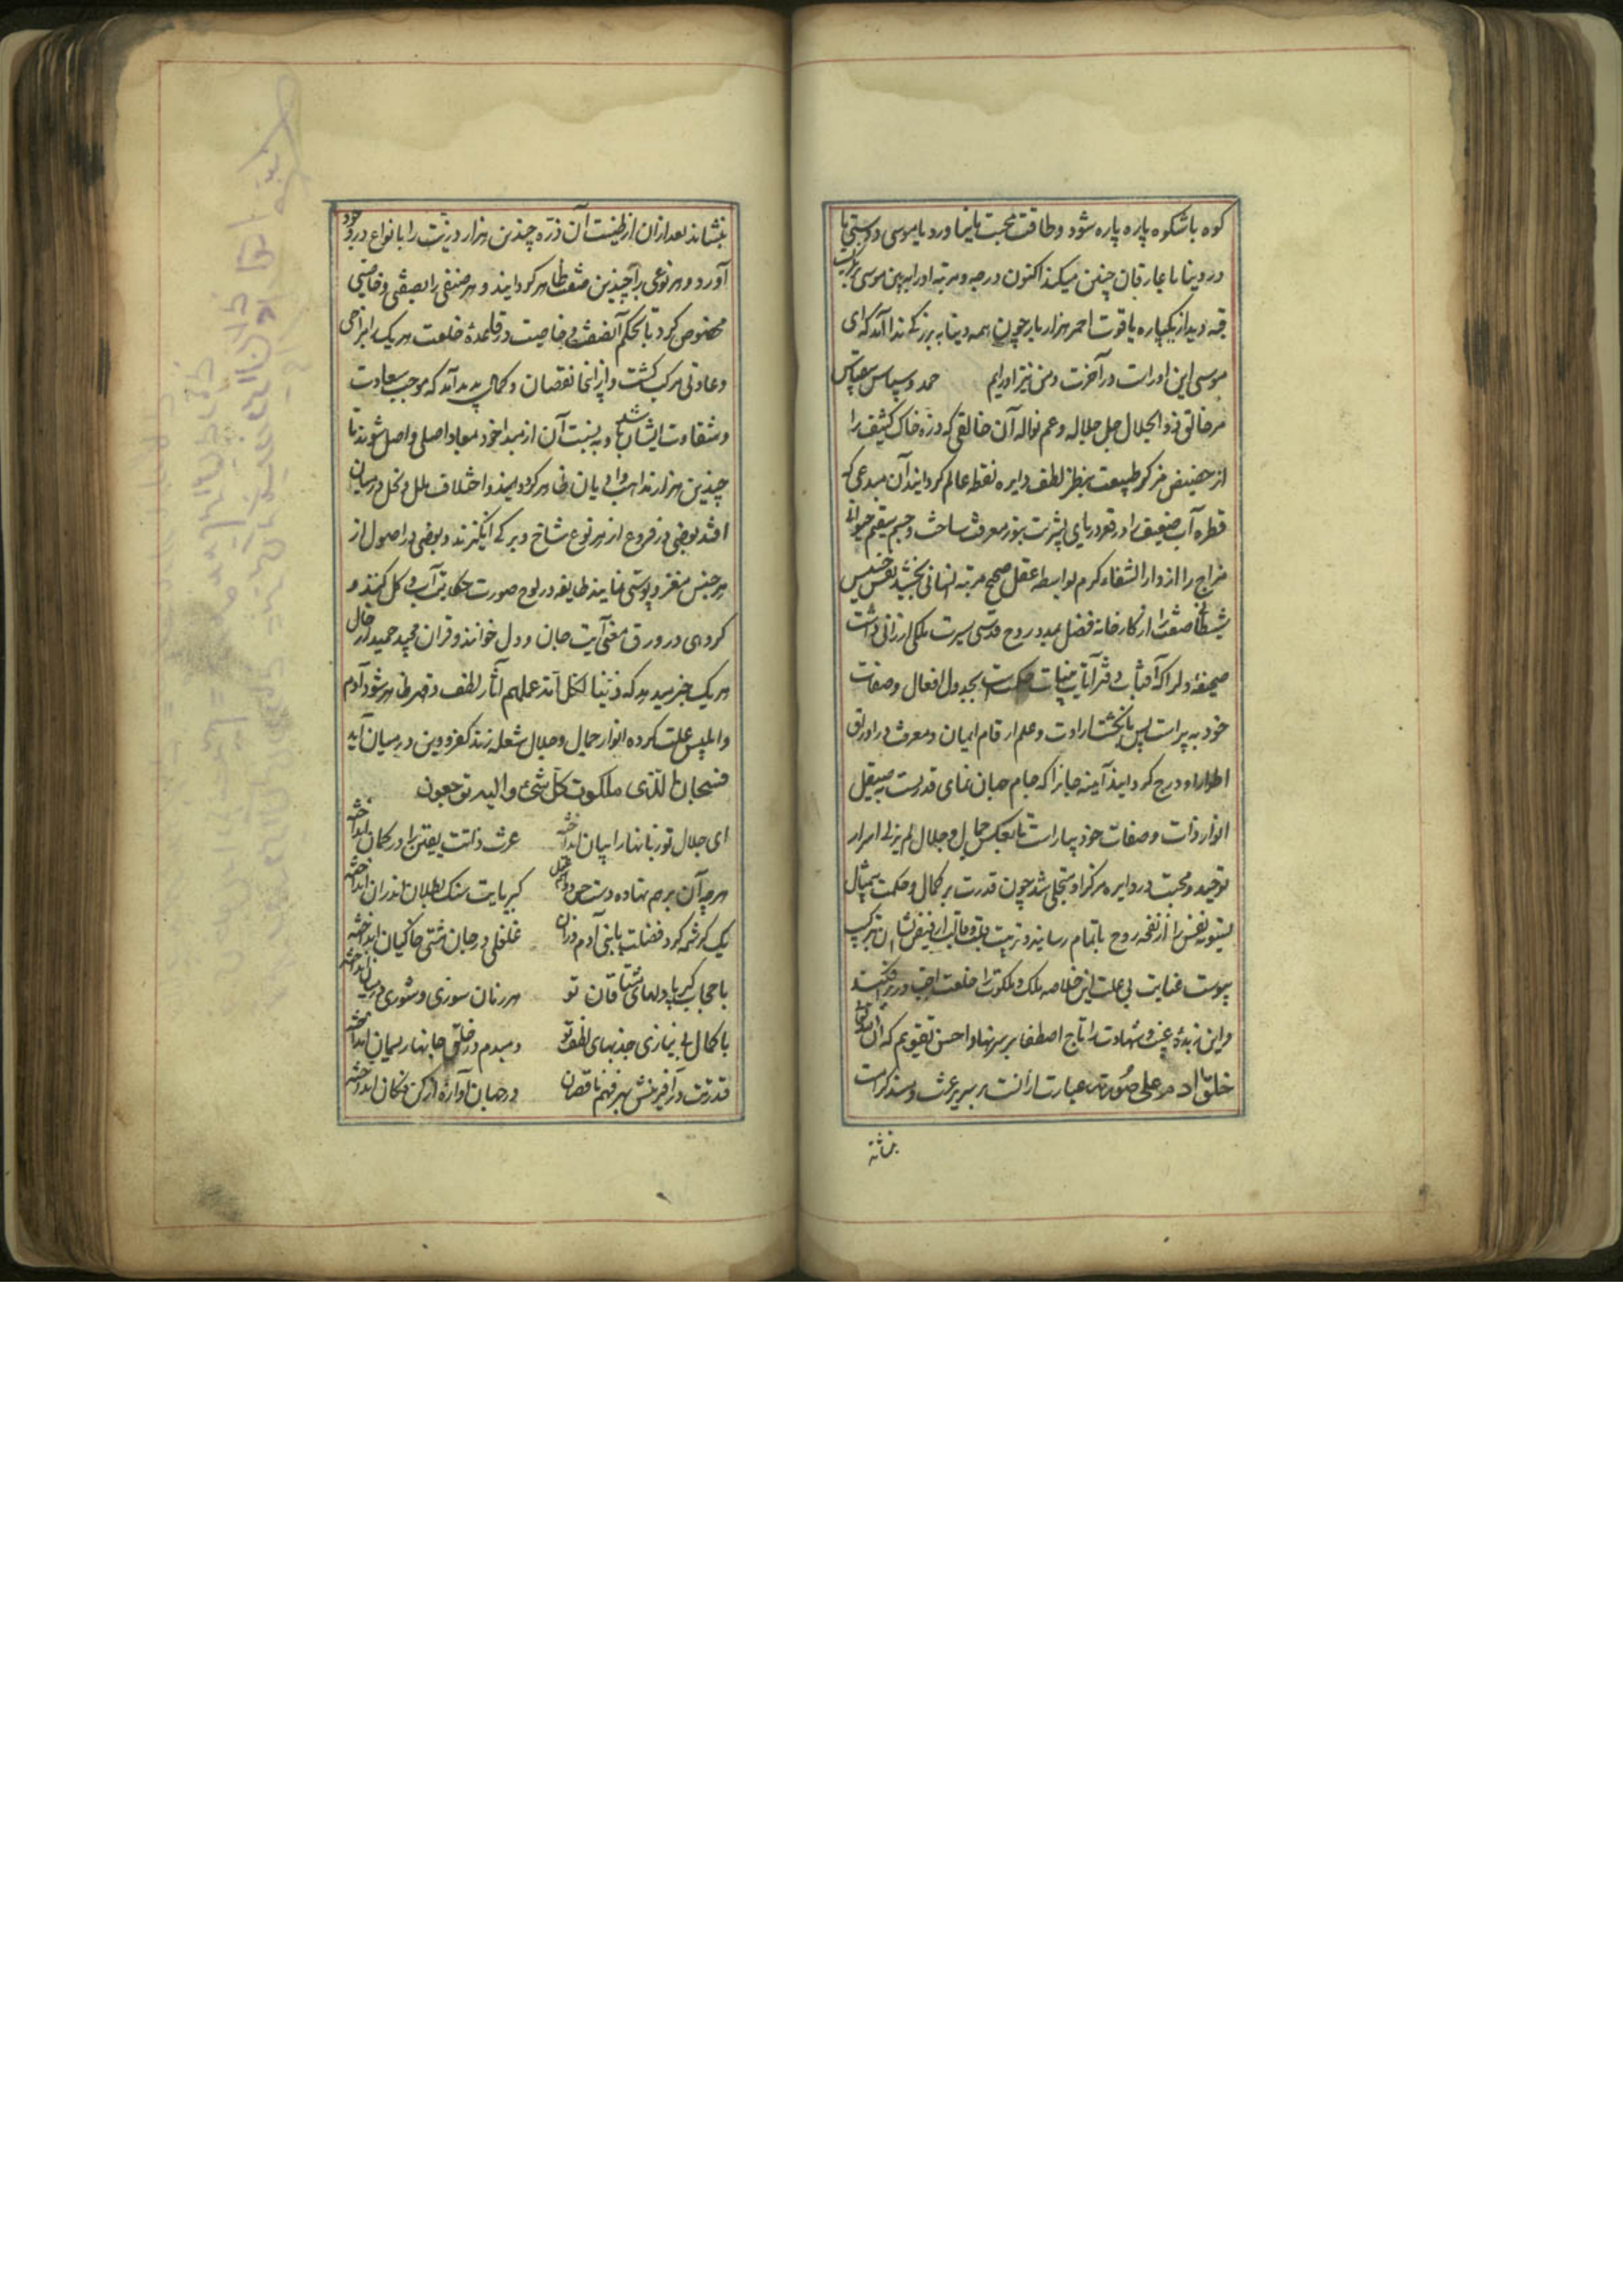 کوه باشکوه پاره پاره شود و طاقت محبت ما نیاورد یا موسی دوستی ما
در دنیا با عارفان چنین میکند اکنون درجه و مرتبه او را ببین موسی
قبه دید از یکپاره یاقوت احمر هزار بار چون همه دنیا به بزرگی ندا آمد که ای
موسی این اوراست در آخرت و من نیز اورایم حمد و سپاس بیقیاس
مر خالق ذو الجلال جل جلاله و عم نواله آن خالقی که ذره خاک کثیف را
از حضیض مرکز طبیعت بنظر لطف دایره نقطه عالم کردانید آن مبدعی که
قطره آب ضعیف را در قعر دریای بشریت بنور معرفت ساخت و جسم سقیم حیوانی
مزاج را از دار الشفاء کرم بواسطه عقل صحیح مرتبه انسانی بخشید نفس خسیس
شیطانی صفت را از کارخانه فضل بمدد روح قدسی سیرت ملکی ارزانی داشت
صحیفه دل را که آفتاب دفتر آیات بینات حکمت است بجدول افعال و صفات
خود بپیراست پس بانکشت ارادت و علم ارقام ایمان و معرفت در اوراق
اطوار او درج کردانید آینه جانرا که جام جهان نمای قدرست به صیقل
انوار ذات و صفات خود بیاراست تا بعکس جمال و جلال لم یزلی اسرار
توحید و محبت در دایره مرکز او متجلی شد چون قدرت بر کمال و حکمت بیمثال
تسویه نفس را از نفخه روح باتمام رسانید و تربیت قلب و قالب از فیض شان ترکیب
پیوست عنایت بی علت این خلاصه ملک و ملکوت را خلعت در بر افکند
و این زبده غیب و شهادت را تاج اصطفا بر سر نهاد و احسن تقویم که ان الله تعالی
خلق آدم علی صورته عبارت از آنست بر سریر عرش و مسند کرامت
بنشاند
بنشاند بعد از آن از طینت آن ذره چندین هزار ذریت را بانواع در وجود
آورد و هر نوعی را چندین صفت ظاهر کردانید و هر صنفی را بصفتی و خاصیتی
مخصوص کرد تا بحکم آن صفت و خاصیت در خلعت هر یک مزاجی
و عادتی مرکب کشت و از انجا نقصان و کمالی پدید آمد که موجب سعادت
و شقاوت ایشان شد و به نسبت آن از مبدا خود بمعاد اصلی واصل شوند تا
چندین هزار مذاهب و ادیان ظاهر کردانید و اختلاف ملل و نحل در میان
افتد بعضی در فروع از هر نوع شاخ و برکی انکیزند و بعضی در اصول از
هر جنس مغز و پوستی نمایند طایفه در لوح صورت حکایت آب و کل کنند و
کروهی در ورق معنی آیت جان و دل خوانند و قرآن مجید حمید از حال
هر یک خبر میدهد که زینا لکل امة عملهم آثار لطف و قهر ظاهر شود آدم
و ابلیس علت کرده انوار جمال و جلال شعله زند کفر و دین در میان آید
فسبحان الذی ملکوت کل شیء و الیه ترجعون
ای جلال تو زبانها را بیان انداخته عزت ذاتت یقین را در کمان انداخته
هر چه آن بر هم نهاده دست کبریایت سنک بطلان اندران انداخته
یک کرشمه کرد فضلت با بنی آدم دران غلغلی در جان مشتی خاکیان انداخته
با حجاب کبریا دلهای مشتاقان تو هر زمان سوزی و شوری در میان انداخته
با کمال بی نیازی جذبهای لطف تو دمبدم در حلق جانها ریسمان انداخته
قدرتت در آفرینش بهر فهم ناقصان در جهان آوازه از کن فکان انداخته